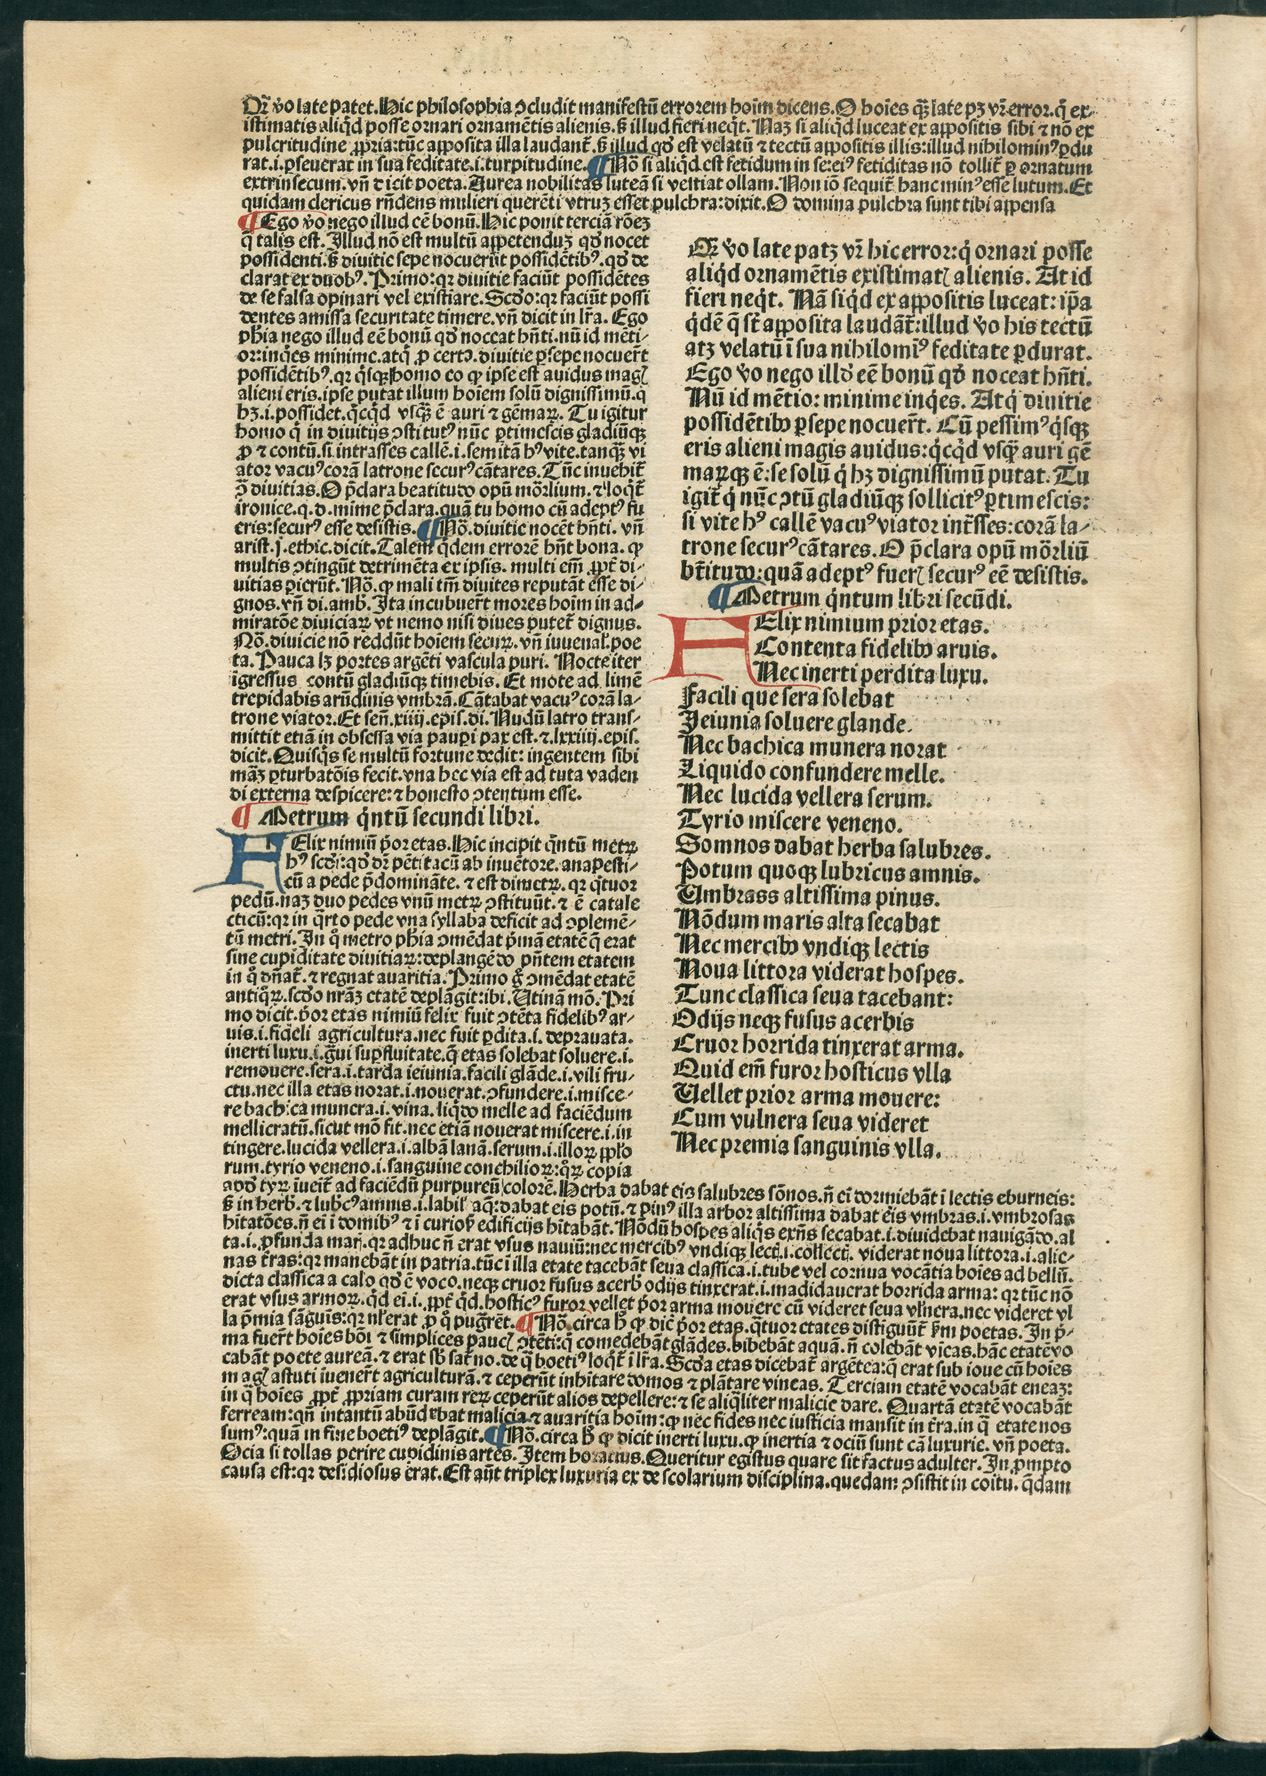 Qr̄ v̊o late patet. Hic philosophia ↄcludit manifestū errorem hoīm dicens. O hoīes q̄ꝫ late pꝫ vr̄ error. q̇ ex-
istimatis aliq̇d posse ornari ornamētis alienis. ꝭ illud fieri neq̇t. Naꝫ si aliq̇d luceat ex appositis sibi ⁊ nō ex
pulcritudine ꝓpria: tūc apposita illa laudant̄. ꝭ illud qd̄ est velatū ⁊ tectū appositis illis: illud nihilominꝰ ꝑdu
rat. i. ꝑseuerat in sua feditate. i. turpitudine. ¶ Nō si aliq̇d est fetidum in se: eiꝰ fetiditas nō tollit̄ ꝑ ornatum
extrinsecum. vn̄ dicit poeta. Aurea nobilitas luteā si vestiat ollam. Non iō sequit̄ hanc minꝰ esse lutum. Et
quidam clericus rn̄dens mulieri querēti vtruꝫ esset pulchra: dixit. O domina pulchra sunt tibi appensa
¶ Ego v̊o nego illud eē bonū. Hic ponit terciā rōeꝫ
q̄ talis est. Illud nō est multū appetenduꝫ qd̄ nocet
possidenti. ꝭ diuitie sepe nocuerūt possidētibꝰ. qd̄ de
clarat ex duobꝰ. Primo: qꝛ diuitie faciūt possidētes
de se falsa opinari vel existiare. Scd̄o: qꝛ faciūt possi
dentes amissa securitate timere. vn̄ dicit in lr̄a. Ego
phīa nego illud eē bonū qd̄ noceat hn̄ti. nū id mēti-
or: inq̇es minime. atq̇ ꝓ certo. diuitie ꝑsepe nocuer̄t
possidētibꝰ. qꝛ q̇sqꝫ homo eo ꝙ ipse est auidus mag̛
alieni eris. ipse putat illum hoīem solū dignissimū. q̇
hꝫ. i. possidet. q̇cq̇d vsq̄ꝫ ē auri ⁊ gēmaꝝ. Tu igitur
homo q̇ in diuitijs ↄstitutꝰ nūc ꝑtimescis gladiūqꝫ
ꝓ ⁊ contū. si intrasses callē. i. semitā hꝰ vite. tanq̄ꝫ vi
ator vacuꝰ corā latrone securꝰ cātares. Tūc inuehit̄
ↄ̄ diuitias. O p̄clara beatitudo opū mōrlium. ⁊ loqt̄
ironice. q. d. mime p̄clara. quā tu homo cū adeptꝰ fu
eris: securꝰ esse desistis. ¶ Nō. diuitie nocēt hn̄ti. vn̄
arist. j. ethic. dicit. Talem q̇dem errorē hn̄t bona. ꝙ
multis ↄtingūt detrimēta ex ipsis. multi em̄ ꝓpt̄ di-
vitias ꝑierūt. Nō. ꝙ mali tm̄ diuites reputāt esse di-
gnos. vn̄ di. amb. Ita incubuer̄t mores hoīm in ad-
miratōe diuiciaꝝ vt nemo nisi diues putet̄ dignus.
Nō. diuicie nō reddūt hoīem secuꝝ. vn̄ iuuenal̛. poe
ta. Pauca lꝫ portes argēti vascula puri. Nocte iter
īgressus contū gladiūqꝫ timebis. Et mote ad limē
trepidabis arūdinis vmbrā. Cātabat vacuꝰ corā la-
trone viator. Et sen̄. xiiij. epis. di. Nudū latro trans-
mittit etiā in obsessa via pauꝑi pax est. ⁊. lxxiiij. epis.
dicit. Quisq̇s se multū fortune dedit: ingentem sibi
māꝫ ꝑturbatōis fecit. vna hec via est ad tuta vaden
di externa despicere: ⁊ honesto ↄtentum esse.
¶ Metrum q̇ntū secundi libri.
FElix nimiū p̊or etas. Hic incipit q̇ntū metꝝ
hꝰ scd̄i: qd̄ dr̄ pētitacū ab inuētore. anapesti-
cū a pede p̄domināte. ⁊ est dimetꝝ. qꝛ q̇tuor
pedū. naꝫ duo pedes vnū metꝝ ↄstituūt. ⁊ ē catale
cticū: qꝛ in q̇rto pede vna syllaba deficit ad ↄplemē-
tū metri. In q̊ metro phīa ↄmēdat p̊mā etatē q̄ erat
sine cupiditate diuitiaꝝ: deplangēdo pn̄tem etatem
in q̊ dn̄at̄. ⁊ regnat auaritia. Primo g̊ ↄmēdat etatē
antiq̊ꝝ. scd̄o nr̄aꝫ etatē deplāgit: ibi. Utinā mō. Pri
mo dicit. p̊or etas nimiū felix fuit ↄtēta fidelibꝰ ar-
uis. i. fideli agricultura. nec fuit ꝑdita. i. deprauata.
inerti luxu. i. g̊ui suꝑfluitate. q̄ etas solebat soluere. i.
remouere. sera. i. tarda ieiunia. facili glāde. i. vili fru-
ctu. nec illa etas norat. i. nouerat. ↄfundere. i. misce-
re bachica munera. i. vina. liq̇do melle ad faciēdum
mellicratū. sicut mō fit. nec etiā nouerat miscere. i. in
tingere. lucida vellera. i. albā lanā. serum. i. illoꝝ pplo
rum. tyrio veneno. i. sanguine conchilioꝝ: q̊ꝝ copia
apd̄ tyꝝ īueit̄ ad faciēdū purpureū colorē. Herba dabat eis salubres sōnos. n̄ ei̇ dormiebāt ī lectis eburneis:
ꝭ in herb̛. ⁊ lubꝛ̇cꝰ amnis. i. labil̛ aq̄: dabat eis potū. ⁊ pinꝰ illa arbor altissima dabat eis vmbras. i. vmbrosas
hitatōes. n̄ ei̇ ī domibꝰ ⁊ ī curiosꝭ edificijs hītabāt. Nōdū hospes aliq̇s exn̄s secabat. i. diuidebat nauigādo. al
ta. i. ꝓfunda marꝭ. qꝛ adhuc n̄ erat vsus nauiū: nec mercibꝰ vndiqꝫ lectꝭ. i. collectꝭ. viderat noua littora. i. alie-
nas t̄ras: qꝛ manebāt in patria. tūc ī illa etate tacebāt seua classica. i. tube vel cornua vocātia hoīes ad bellū.
dicta classica a calo qd̄ ē voco. neqꝫ cruor fusus acerbꝭ odijs tinxerat. i. madidauerat horrida arma: qꝛ tūc nō
erat vsus armoꝝ. q̇d ei̇. i. ꝓpt̄ q̇d. hosticꝰ furor vellet p̊or arma mouere cū videret seua vl̄nera. nec videret vl
la p̊mia sāguis: qꝛ nl̛ erat ꝓ q̊ pugrēt. ¶ Nō. circa h̊ ꝙ dic̄ p̊or etas. q̇tuor etates distīguūt̄ ẜm poetas. In p̊-
ma fuer̄t hoīes bōi ⁊ simplices paucꝭ ↄtēti: q̇ comedebāt glādes. bibebāt aquā. n̄ colebāt vicas. hāc etatē vo
cabāt poete aureā. ⁊ erat sb̄ sat̄no. de q̊ boetiꝰ loqt̄ ī lr̄a. Scd̄a etas dicebat̄ argētea: q̄ erat sub ioue cū hoīes
mag̛ astuti īuener̄t agriculturā. ⁊ ceperūt inhītare domos ⁊ plātare vineas. Terciam etatē vocabāt eneaꝫ:
in q̊ hoīes ꝓpt̄ ꝓpriam curam reꝝ ceperūt alios depellere: ⁊ se aliq̇liter malicie dare. Quartā etatē vocabāt
ferream: qn̄ intantū abūdabat malicia ⁊ auaritia hoīm: ꝙ nec fides nec iusticia mansit in t̄ra. in q̊ etate nos
sumꝰ: quā in fine boetiꝰ deplāgit. ¶ Nō. circa h̊ ꝙ dicit inerti luxu. ꝙ inertia ⁊ ociū sunt cā luxurie. vn̄ poeta.
Ocia si tollas perire cupidinis artes. Item horatius. Queritur egistus quare sit factus adulter. In ꝓmpto
causa est: qꝛ desidiosus erat. Est aūt triplex luxuria ex de scolarium disciplina. quedam ↄsistit in coitu. q̄dam
Qr̄ v̊o late patꝫ vr̄ hic error: q̇ ornari posse
aliq̇d ornamētis existimatꝭ alienis. At id
fieri neq̇t. Nā siq̇d ex appositis luceat: ip̄a
q̇dē q̄ st̄ apposita laudāt̄: illud v̊o his tectū
atꝫ velatū ī sua nihilomīꝰ feditate ꝑdurat.
Ego v̊o nego illd̄ eē bonū qd̄ noceat hn̄ti.
Nū id mētio: minime inq̇es. Atq̇ diuitie
possidētibꝰ ꝑsepe nocuer̄t. Cū pessimꝰ q̇sqꝫ
eris alieni magis auidus: q̇cq̇d vsq̄ꝫ auri gē
maꝝqꝫ ē: se solū q̇ hꝫ dignissimū putat. Tu
igit̄ q̇ nūc ↄtū gladiūqꝫ sollicitꝰ ꝑtimescis:
si vite hꝰ callē vacuꝰ viator int̄sses: corā la-
trone securꝰ cātares. O p̄clara opū mōrliū
bt̄itudo: quā adeptꝰ fuerꝭ securꝰ eē desistis.
¶ Metrum q̇ntum libri secūdi.
FElix nimium prior etas.
Contenta fidelibꝰ aruis.
Nec inerti perdita luxu.
Facili que sera solebat
Jeiunia soluere glande.
Nec bachica munera norat
Liquido confundere melle.
Nec lucida vellera serum.
Tyrio miscere veneno.
Somnos dabat herba salubres.
Potum quoqꝫ lubricus amnis.
Umbrass altissima pinus.
Nōdum maris alta secabat
Nec mercibꝰ vndiqꝫ lectis
Noua littora viderat hospes.
Tunc classica seua tacebant:
Odijs neqꝫ fusus acerbis
Cruor horrida tinxerat arma.
Quid em̄ furor hosticus vlla
Uellet prior arma mouere:
Cum vulnera seua videret
Nec premia sanguinis vlla.